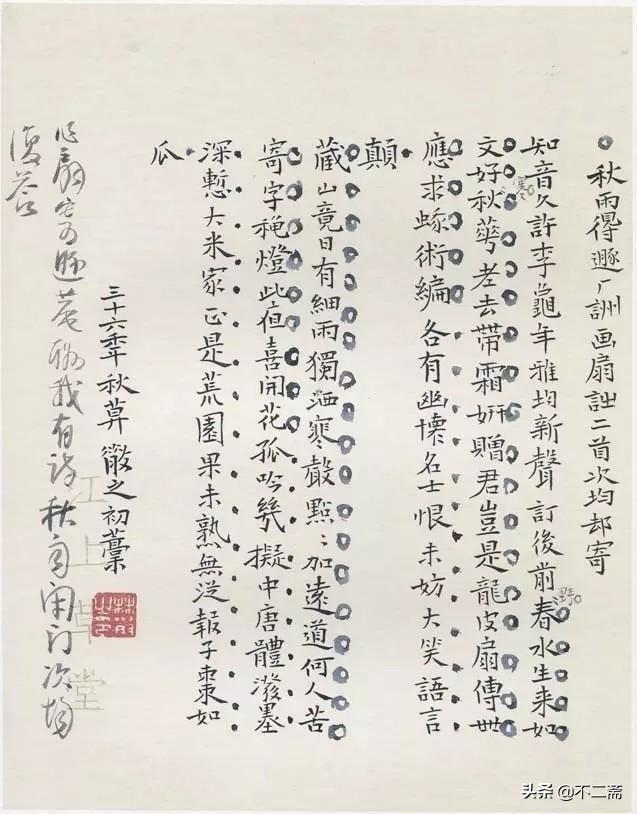 秋雨得遯厂詶画扇𧥳二首次均却寄
知音久許李龜年雅均新聲訂後前春水生来如
野
文好秋華老去帶霜妍贈君豈是龍皮扇傳世
寒
應求蛾術編各有幽懷名士恨未妨大笑語言
顛
藏山竟日有細雨獨洒寒聲點〻加遠道何人苦
寄字穐燈此夜喜開花孤吟幾擬中唐體潑墨
深慙大米家正是荒園果未熟無從報子棗如
瓜
三十六年秋莫散之初藁
以扇寄遯菴酬我有詩秋雨閉门次均
復荅
江上草堂
头条 @不二斋